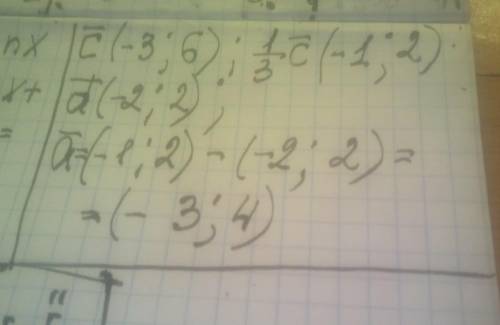 nx c̄(-3; 6); 1/3 c̄(-1; 2)
x+ d̄(-2; 2);
= ā=(-1; 2) - (-2; 2) =
= (- 3; 4)